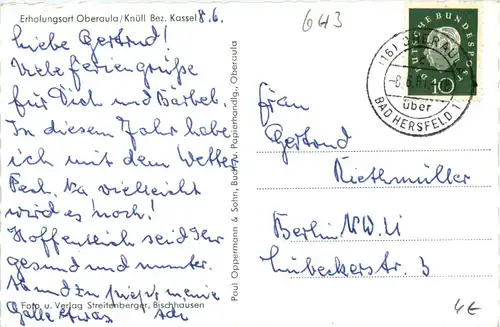 Erholungsort Oberaula/Knüll Bez. Kassel
8.6.
643
Liebe Gertrud!
Viele Feriengrüße
für Dich und Bärbel.
In diesem Jahr habe
ich mit dem Wetter
Pech. Na vielleicht
wird es noch!
Hoffentlich seid Ihr
gesund und munter.
Ab und zu
meine
Galle etwas
Foto u. Verlag Streitenberger, Bischhausen
Paul Oppermann & Sohn, Buch- u. Papierhandlg., Oberaula
DEUTSCHE BUNDESPOST
10
(16) OBERAULA
über
BAD HERSFELD 1
Frau
Gertrud
Riethmüller
Berlin NW.
Lübeckerstr. 3
4€